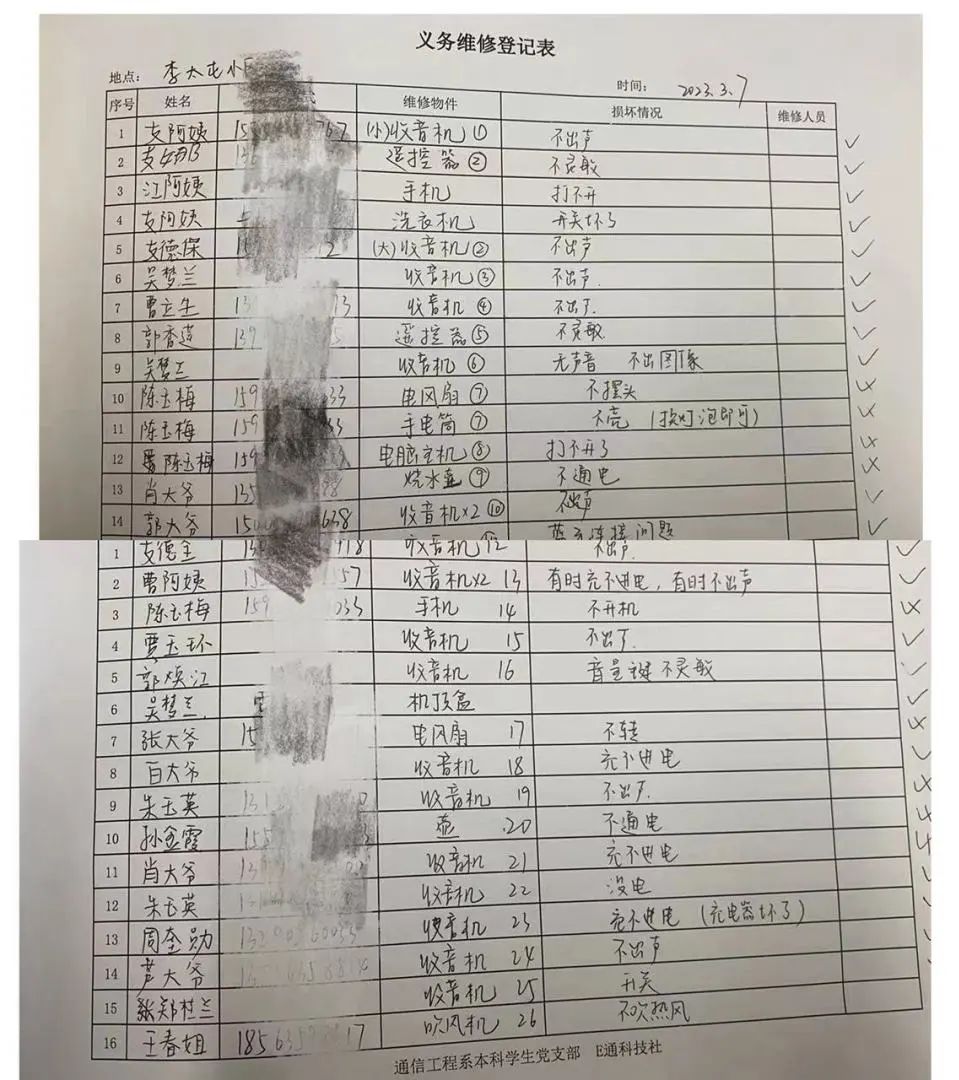 义务维修登记表
地点： 李大屯小区 时间： 2023.3.7
序号 姓名 维修物件 损坏情况 维修人员
1 支阿姨 (小)收音机① 不出声 ✓
2 遥控器② 不灵敏 ✓
3 江阿姨 手机 打不开 ✓
4 支阿姨 洗衣机 开关坏了 ✓
5 支德保 (大)收音机② 不出声 ✓
6 吴梦兰 收音机③ 不出声. ✓
7 曹立生 收音机④ 不出声. ✓
8 郭香莲 139 遥控器⑤ 不灵敏 ✓
9 吴梦兰 收音机⑥ 无声音 不出图像 ✓
10 陈玉梅 159 33 电风扇⑦ 不摆头 ×
11 陈玉梅 159 手电筒⑦ 不亮 （换灯泡即可） ×
12 陈玉梅 159 电脑主机⑧ 打不开了 ×
13 肖大爷 135 烧水壶⑨ 不通电 ×
14 郭大爷 150 638 收音机×2⑩ 不出声 ✓
蓝牙连接问题 ✓
1 支德玉 918 收音机 12 不出声. ✓
2 曹阿姨 157 收音机×2 13 有时充不进电，有时不出声 ✓
3 陈玉梅 159 033 手机 14 不开机 ×
4 贾玉环 收音机 15 不出声. ✓
5 郭焕江 收音机 16 音量键不灵敏 ✓
6 吴梦兰. 机顶盒 ✓
7 张大爷 15 电风扇 17 不转 ×
8 百大爷 收音机 18 充不进电 ✓
9 朱玉英 收音机 19 不出声. ×
10 孙金霞 155 壶 .20 不通电 ×
11 肖大爷 收音机 21 充不进电 ×
12 朱玉英 收音机 22 没电
13 周奎勋 收音机 23 充不进电 （充电器坏了）
14 大爷 收音机 24 不出声
15 郑桂兰 收音机 25 开关
16 王春姐 吹风机 26 不吹热风
通信工程系本科学生党支部 E通科技社